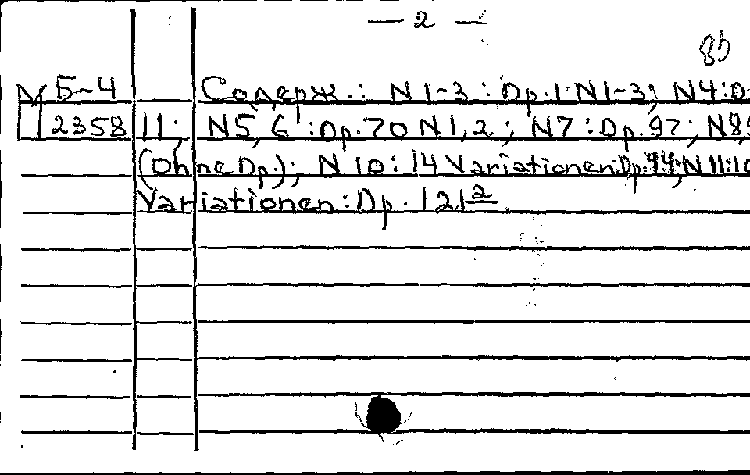 — 2 —
85
М Б-4 Содерж.: N 1-3: Op. 1 N 1-3; N4: O
2358 11; N5, 6: Op. 70 N 1, 2; N7: Op. 97; N8,
(ohne Op.); N 10: 14 Variationen: Op. 44; N 11: 10
Variationen: Op. 121ª